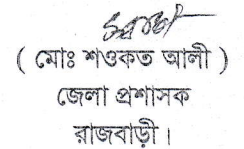 ( মোঃ শওকত আলী )
জেলা প্রশাসক
রাজবাড়ী।